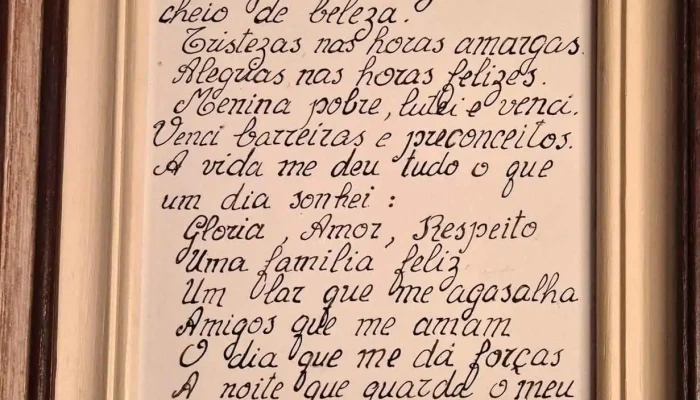 cheio de beleza.
Tristezas nas horas amargas.
Alegrias nas horas felizes.
Menina pobre, lutei e venci.
Venci barreiras e preconceitos.
A vida me deu tudo o que
um dia sonhei :
Gloria , Amor, Respeito
Uma familia feliz
Um lar que me agasalha
Amigos que me amam
O dia que me dá forças
A noite que guarda o meu